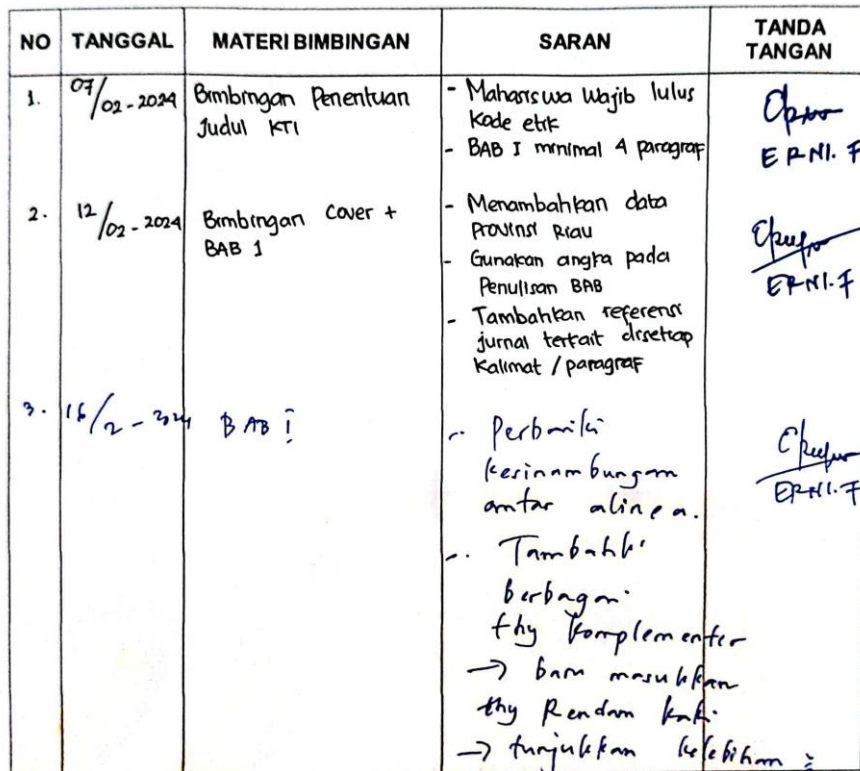 NO TANGGAL MATERI BIMBINGAN SARAN TANDA TANGAN
1. 07/02-2024 Bimbingan Penentuan Judul KTI
- Mahasiswa Wajib lulus
Kode etik
- BAB I minimal 4 paragraf
ERNI. F
2. 12/02-2024 Bimbingan Cover +
BAB 1
- Menambahkan data
Provinsi Riau
- Gunakan angka pada
Penulisan BAB
- Tambahkan referensi
jurnal terkait disetiap
Kalimat / paragraf
ERNI. F
3. 16/2-2024 BAB I
- Perbaiki
kesinambungan
antar alinea.
- Tambahk
berbagai
thy komplementer
→ baru masukkan
thy Rendam kaki
→ tunjukkan kelebihan
ERNI. F